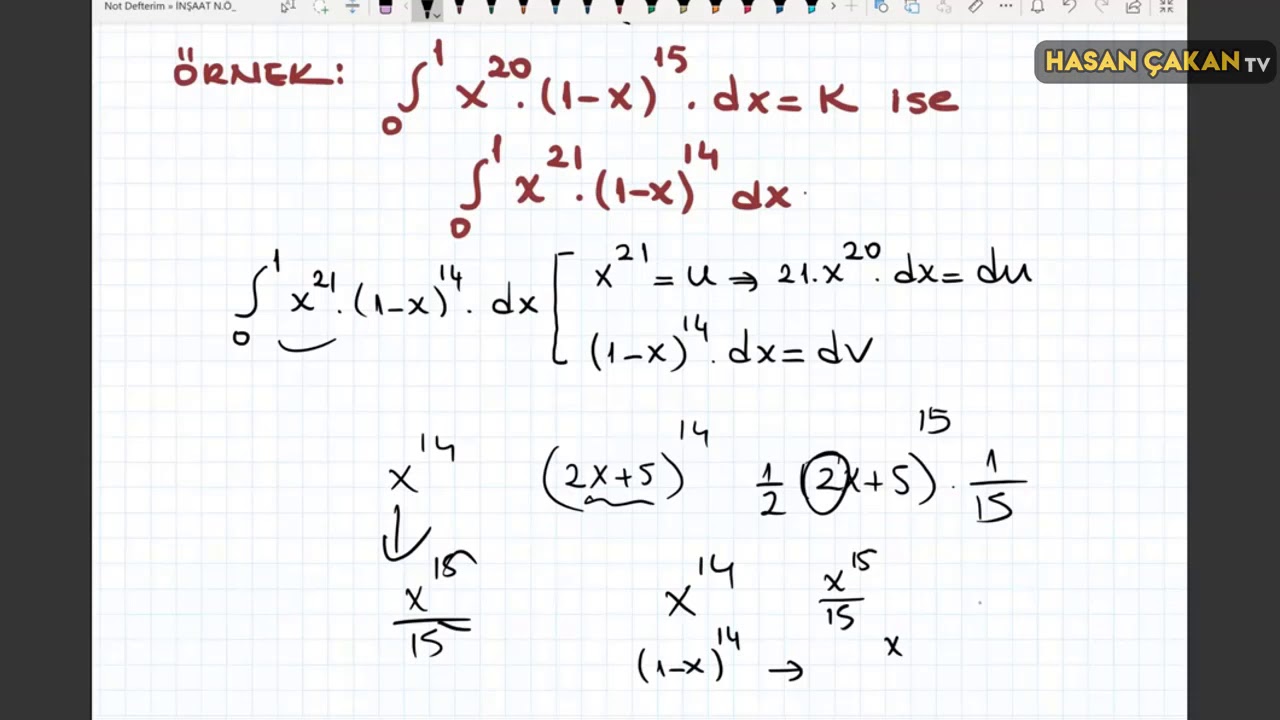 Not Defterim » İNŞAAT N.Ö_
HASAN ÇAKAN TV
ÖRNEK: ∫₀¹ x²⁰.(1-x)¹⁵.dx = K ise
∫₀¹ x²¹.(1-x)¹⁴ dx
∫₀¹ x²¹.(1-x)¹⁴.dx [ x²¹ = u ⇒ 21.x²⁰.dx = du
(1-x)¹⁴.dx = dv
x¹⁴ (2x+5)¹⁴ 1/2 (2x+5)¹⁵ . 1/15
↓
x¹⁵/15 x¹⁴ x¹⁵/15
(1-x)¹⁴ → x